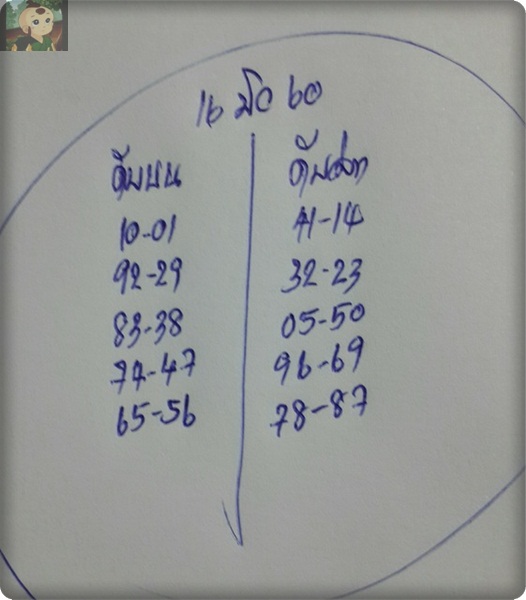 16 มิย 60
ดับบน
10-01
92-29
83-38
74-47
65-56
ดับล่าง
41-14
32-23
05-50
96-69
78-87